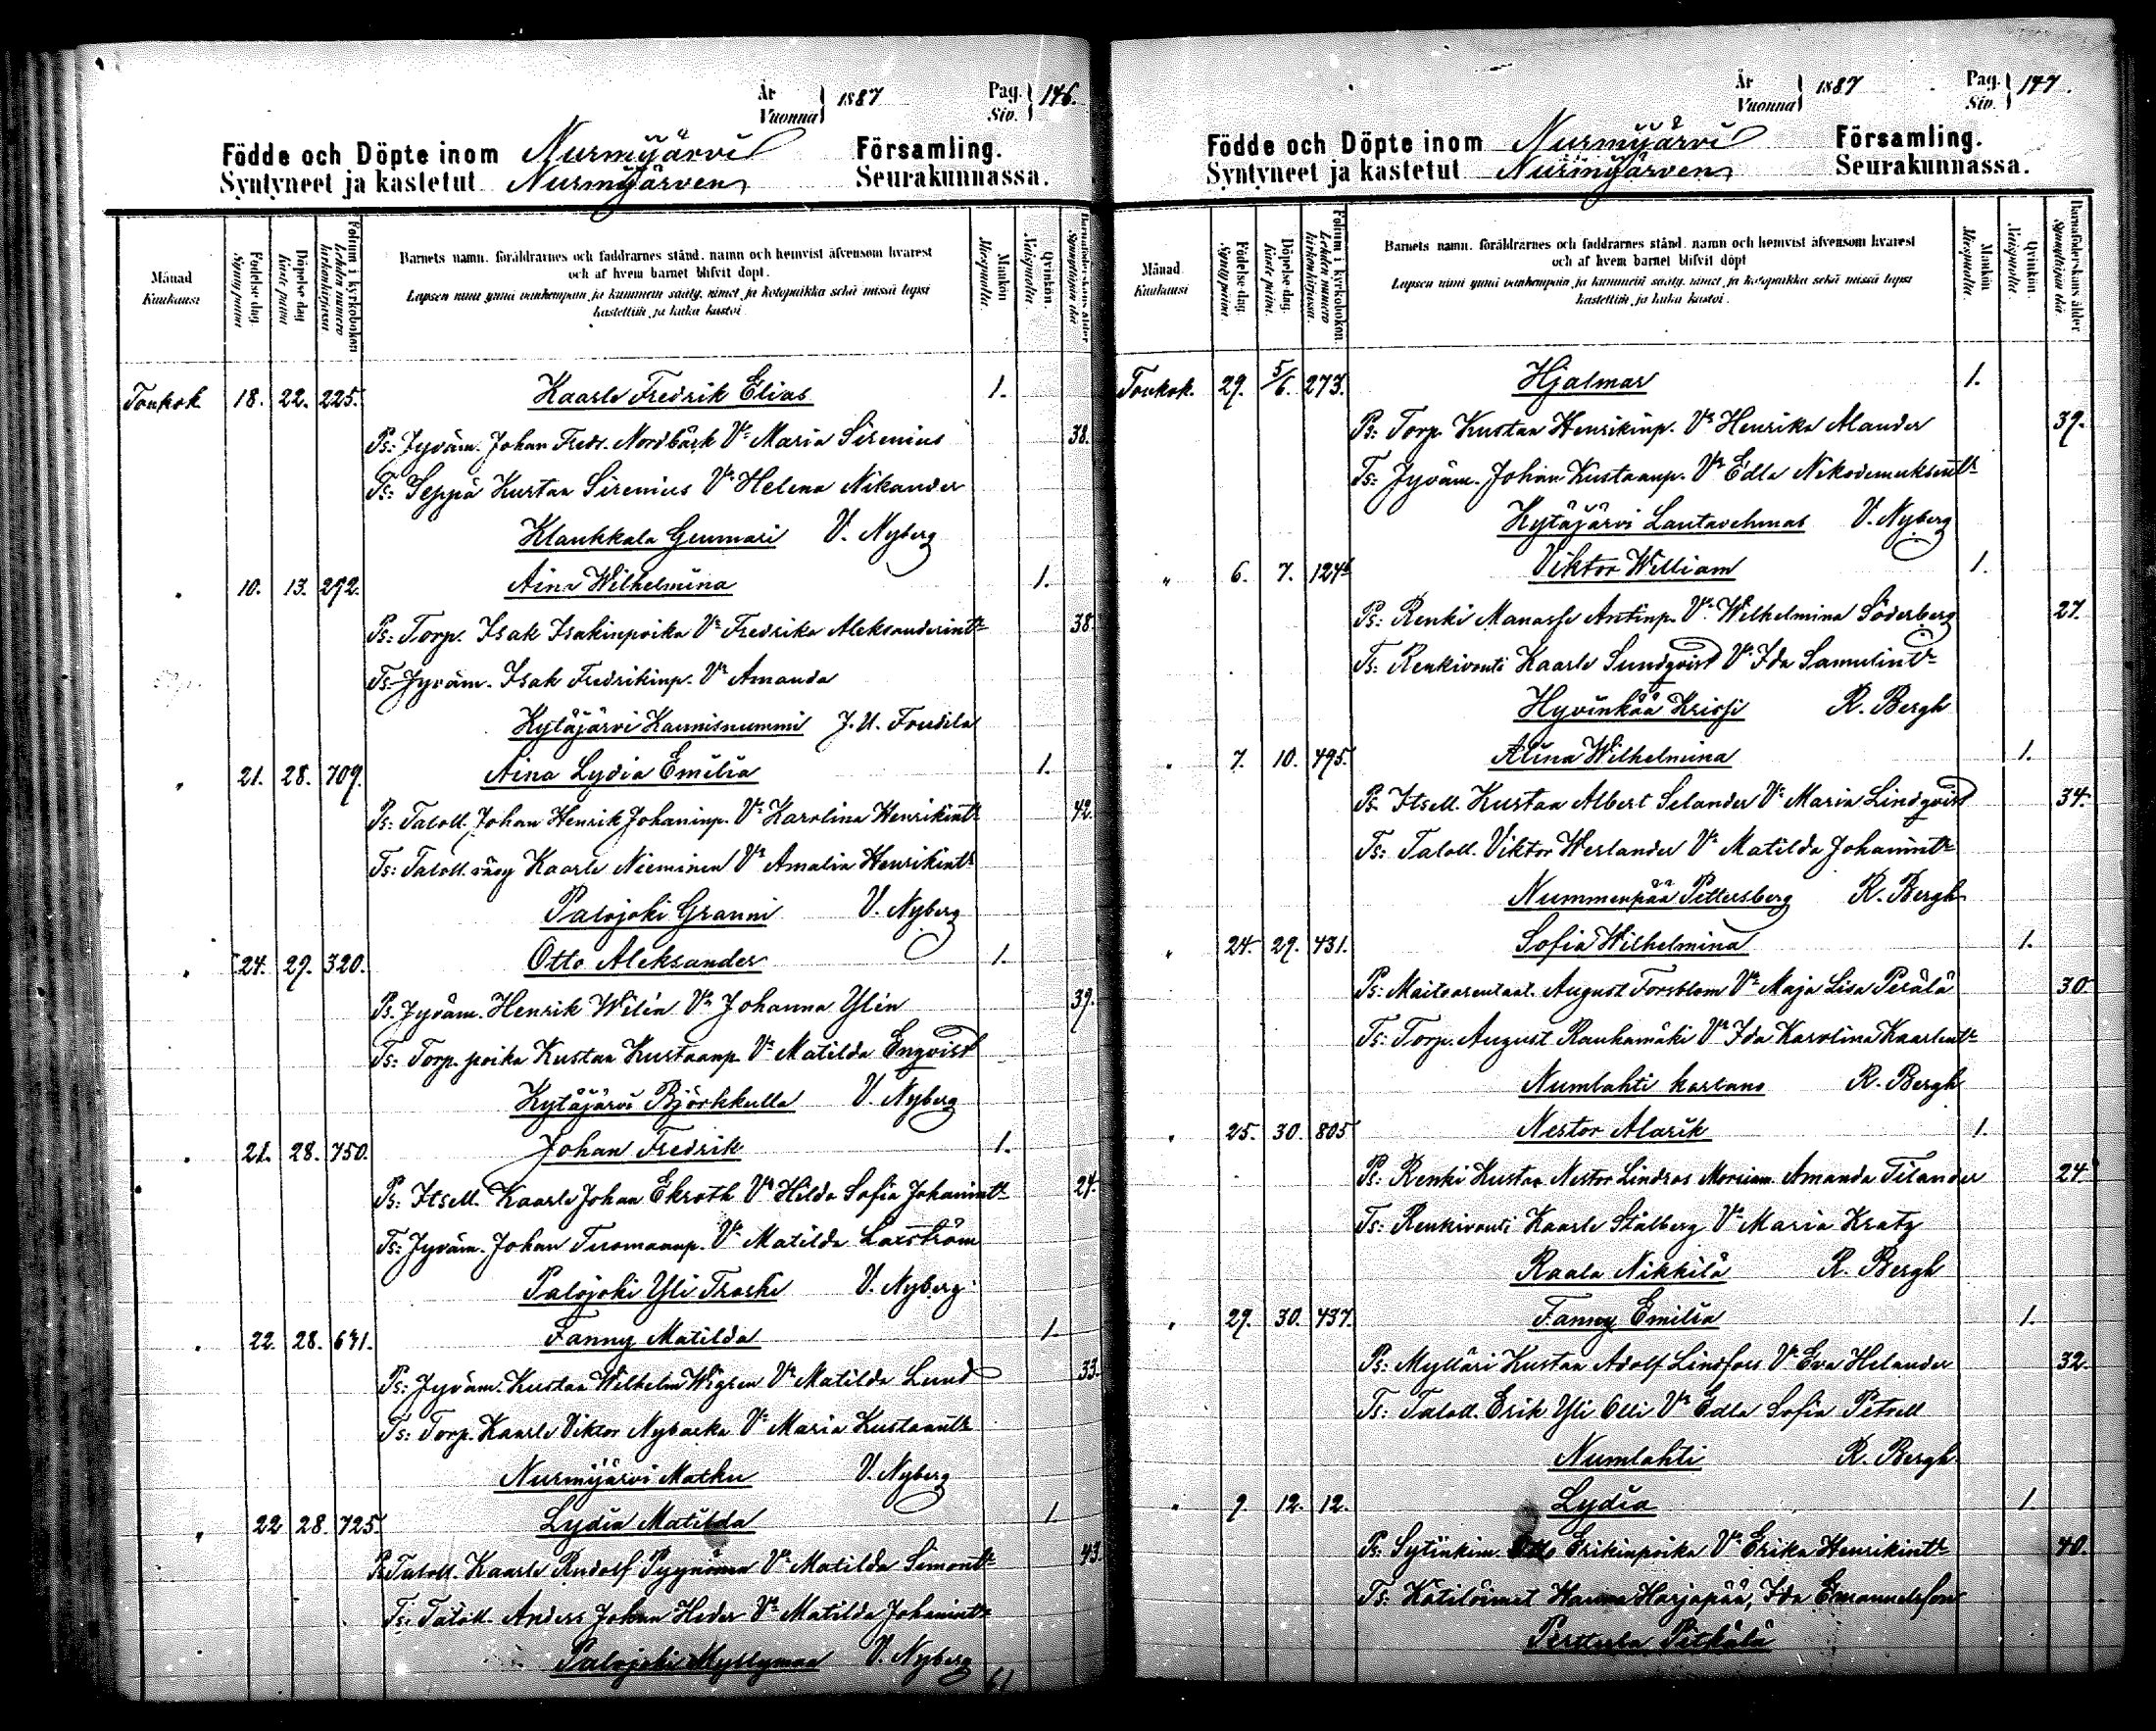 År
Vuonna } 1887
Pag.
Siv. } 146.
Födde och Döpte inom Nurmijärvi Församling.
Syntyneet ja kastetut Nurmijärven Seurakunnassa.
Månad
Kuukausi
Födelse dag.
Syntypäivä
Döpelse dag
Kaste päivä
Folium i kyrkoboken
Lehden numero kirkonkirjassa
Barnets namn, föräldrarnes och faddrarnes stånd, namn och hemvist äfvensom hvarest
och af hvem barnet blifvit döpt.
Lapsen nimi ynnä vanhempain ja kummein sääty, nimet ja kotopaikka sekä missä lapsi
kastettiin ja kuka kastoi
Mankön
Miespuolia.
Qvinkön.
Naispuolia.
Barnaföderskans ålder
Synnyttäjän ikä
Toukok. 18. 22. 225. Kaarle Fredrik Elias 1.
Ps: Jyväm. Johan Fredr. Nordbäck Vo Maria Sirenius 38.
Ts: Seppä Kustaa Sirenius Vo Helena Nikander
Klaukkala Gunnari V. Nyberg
" 10. 13. 292. Aina Wilhelmina 1.
Ps: Torp. Isak Isakinpoika Vo Fredrika Aleksanderintr 38
Ts: Jyväm. Isak Fredrikinp. Vo Amanda
Kytäjärvi Kaunisnummi
" 21. 28. 709. Aina Lydia Emilia 1.
Ps: Taloll. Johan Henrik Johaninp. Vo Karolina Henrikintr 42.
Ts: Taloll. Kaarle Nieminen Vo Amalia Henrikintr
Palojoki Granni V. Nyberg
" 24. 29. 320. Otto Aleksander 1.
Ps. Jyväm. Henrik Wilén Vo Johanna Ylén 39.
Ts: Torp. poika Kustaa Kustaanp. Vo Matilda Enqvist
Kytäjärvi Björkkulla V. Nyberg
" 21. 28. 750. Johan Fredrik 1.
Ps: Itsell. Kaarle Johan Ekroth Vo Hilda Sofia Johanintr 24.
Ts: Jyväm. Johan Tuomaanp. Vo Matilda Laxström
Palojoki Yli Traski V. Nyberg
" 22. 28. 671. Fanny Matilda 1.
Ps: Jyväm. Kustaa Wilhelm Wigren Vo Matilda Lund 33.
Ts: Torp. Kaarle Viktor Nybacka Vo Maria Kustaantr
Nurmijärvi V. Nyberg
" 22 28. 725. Lydia Matilda 1
Ps Taloll. Kaarle Rudolf Pyynönen Vo Matilda Simontr 43
Ts: Taloll. Anders Johan Heder Vo Matilda Johanintr
Palojoki Myllymaa V. Nyberg
År
Vuonna } 1887
Pag.
Siv. } 147.
Födde och Döpte inom Nurmijärvi Församling.
Syntyneet ja kastetut Nurmijärven Seurakunnassa.
Månad
Kuukausi
Födelse dag.
Synty päivä.
Döpelse dag.
Kaste päivä.
Folium i kyrkoboken
Lehden numero kirkonkirjassa.
Barnets namn, föräldrarnes och faddrarnes stånd, namn och hemvist äfvensom hvarest
och af hvem barnet blifvit döpt
Lapsen nimi ynnä vanhempain ja kummein sääty, nimet ja kotopaikka sekä missä lapsi
kastettiin ja kuka kastoi.
Mankön
Miespuolia
Qvinkön.
Naispuolia.
Barnaföderskans ålder
Synnyttäjän ikä.
Toukok. 29. 5/6. 273. Hjalmar 1.
Ps: Torp. Kustaa Henrikinp. Vo Henrika Alander 39.
Ts: Jyväm. Johan Kustaanp. Vo Edla Nikodemuksentr
Kytäjärvi Lautavehmas V. Nyberg
" 6. 7. 124b Viktor William 1.
Ps: Renki Manasse Antinp. Vo Wilhelmina Söderberg 27.
Ts: Renkivouti Kaarle Sundqvist Vo Ida Samulintr
Hyvinkää Krissi R. Bergh
" 7. 10. 495. Alina Wilhelmina 1.
Ps. Itsell. Kustaa Albert Selander Vo Maria Lindqvist 34.
Ts: Taloll. Viktor Weslander Vo Matilda Johanintr
Nummenpää Pettersberg R. Bergh
" 24. 29. 431. Sofia Wilhelmina 1.
Ps: Maitoarentaat. August Forsblom Vo Maja Lisa Perälä 30.
Ts: Torp. August Rauhamäki Vo Ida Karolina Kaarlentr
Numlahti kartano R. Bergh
" 25. 30. 805 Nestor Alarik 1.
Ps: Renki Kustaa Nestor Lindros Morsiam. Amanda Tilander 24.
Ts: Renkivouti Kaarle Stålberg Vo Maria Kratz
Raala Nikkilä R. Bergh
" 29. 30. 437. Fanny Emilia 1.
Ps: Mylläri Kustaa Adolf Lindfors Vo Eva Helander 32.
Ts: Taloll. Erik Yli Olli Vo Edla Sofia Petrell
Numlahti R. Bergh
" 9. 12. 12. Lydia 1.
Ps: Sytinkim. Otto Erikinpoika Vo Erika Henrikintr 40.
Ts: Kätilöimet Hanna Harjapää, Ida Emanuelsson
Perttula Pitkälä